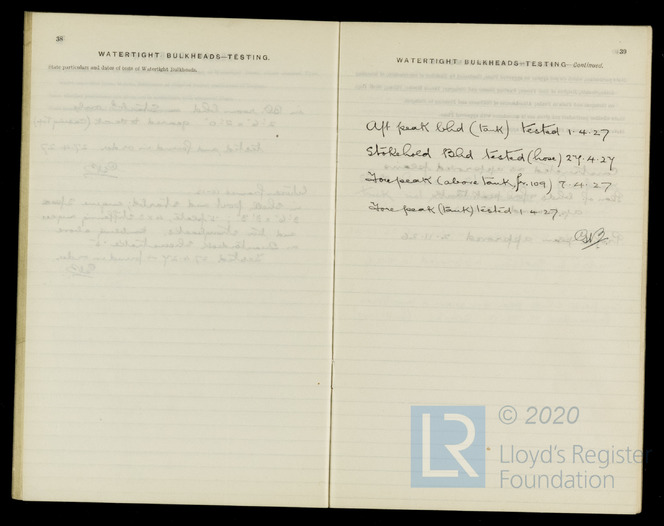 38
WATERTIGHT BULKHEADS—TESTING.
State particulars and dates of tests of Watertight Bulkheads.
39
WATERTIGHT BULKHEADS—TESTING—Continued.
Aft peak blhd (tank) tested 1.4.27
Stokehold Blhd tested (hose) 27.4.27
Fore peak (above tank, fr. 109) 7.4.27
Fore peak (tank) tested 1.4.27
LR
© 2020
Lloyd's Register
Foundation